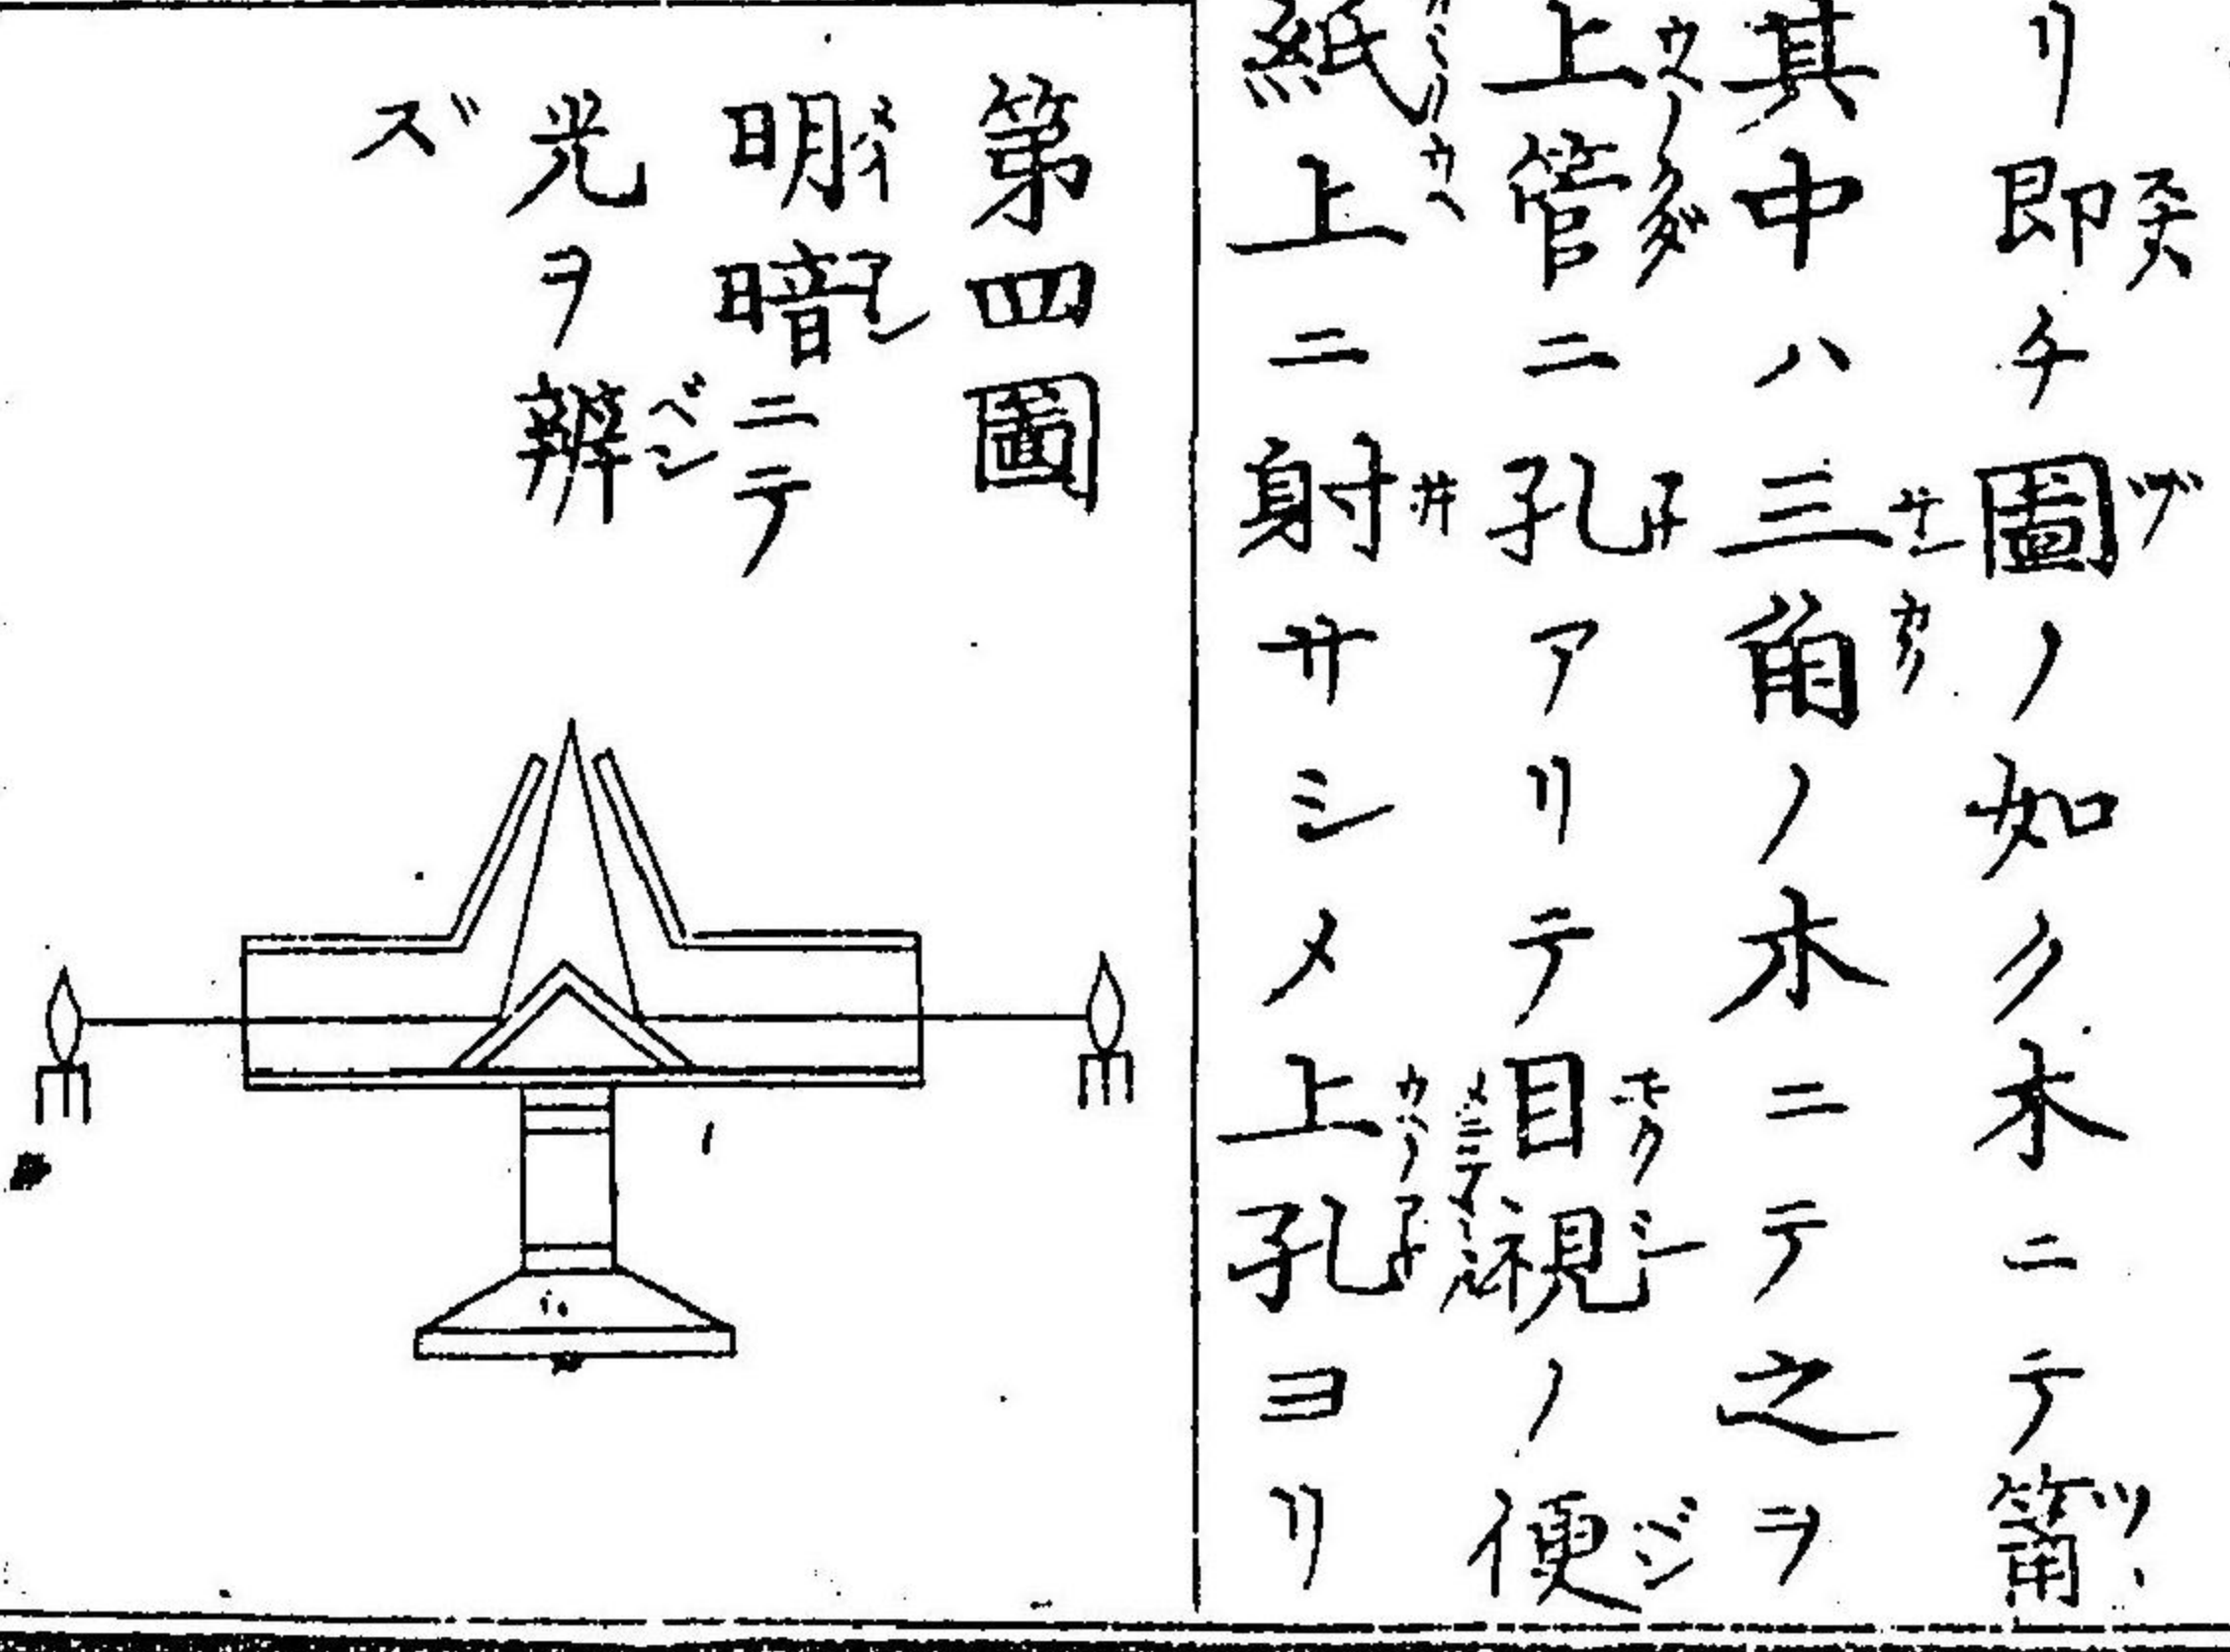 リ即チ圖ノ如ク木ニテ筩
其中ハ三角ノ木ニテ之ヲ
上管ニ孔アリテ目視ノ便
紙上ニ射サシメ上孔ヨリ
第四圖
明暗ニテ
光ヲ辨
ズ